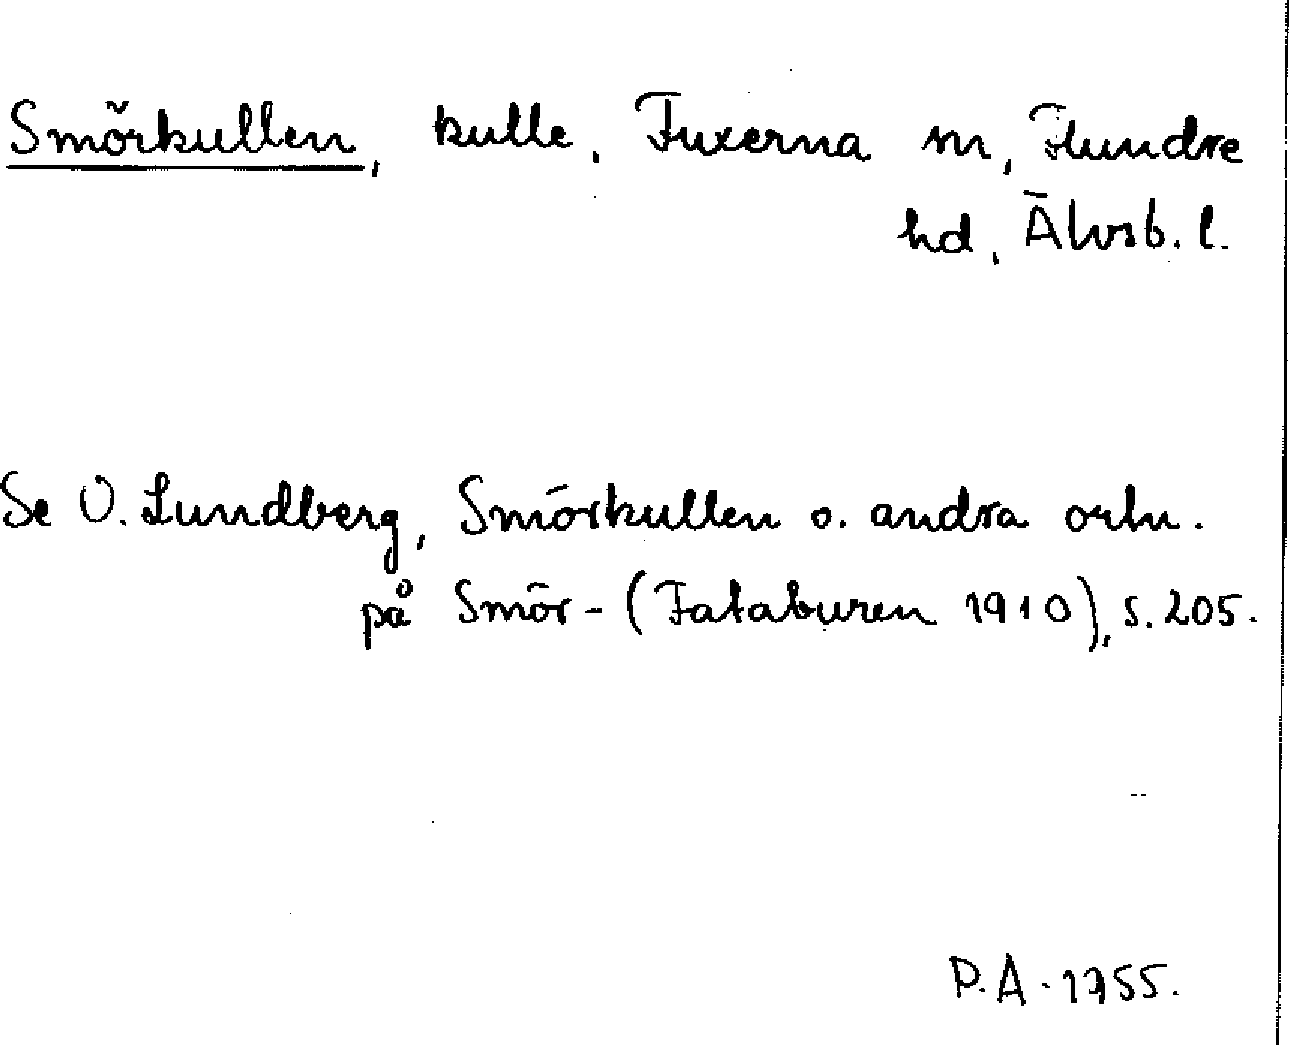 Smörkullen, kulle, Fuxerna sn, Flundre
hd, Älvsb. l.
Se O. Lundberg, Smörkullen o. andra ortn.
på Smör- (Fataburen 1910), s. 205.
P.A. 1955.